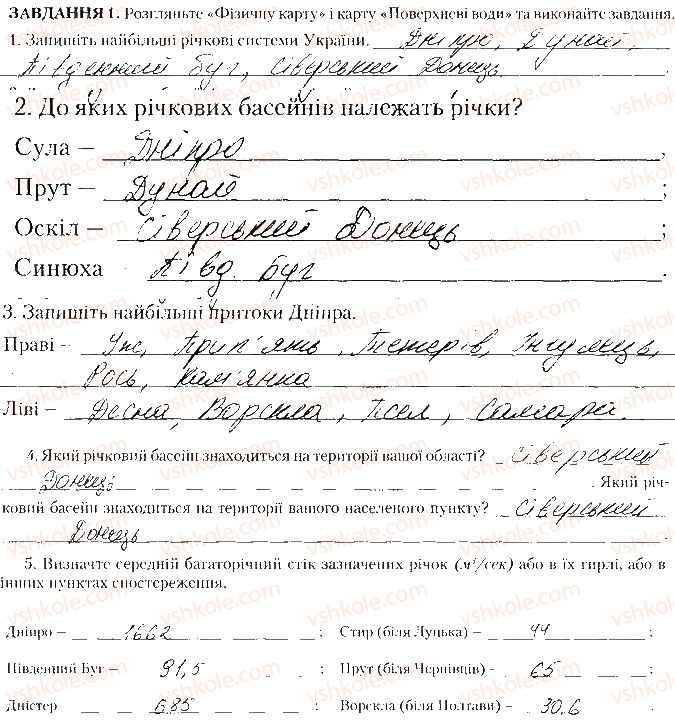 ЗАВДАННЯ 1. Розгляньте «Фізичну карту» і карту «Поверхневі води» та виконайте завдання.
1. Запишіть найбільші річкові системи України. Дніпро, Дунай,
Південний Буг, Сіверський Донець
2. До яких річкових басейнів належать річки?
Сула – Дніпро ;
Прут – Дунай ;
Оскіл – Сіверський Донець ;
Синюха Півд. Буг .
3. Запишіть найбільші притоки Дніпра.
Праві - Уж, Прип'ять, Тетерів, Інгулець,
Рось, Кам'янка
Ліві – Десна, Ворскла, Псел, Самара.
4. Який річковий басейн знаходиться на території вашої області? Сіверський
Донець . Який річ-
ковий басейн знаходиться на території вашого населеного пункту? Сіверський
Донець
5. Визначте середній багаторічний стік зазначених річок (м³/сек) або в їх гирлі, або в
інших пунктах спостереження.
Дніпро – 1662 ; Стир (біля Луцька) – 44 ;
Південний Буг – 91,5 ; Прут (біля Чернівців) – 65 ;
Дністер 685 ; Ворскла (біля Полтави) – 30,6
vshkole.com